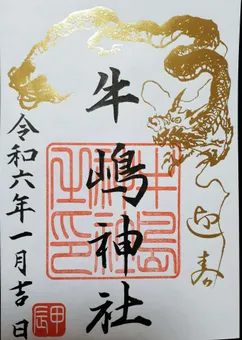 迎
牛嶋神社
牛嶋
神社
之印
令和六年一月吉日
甲辰